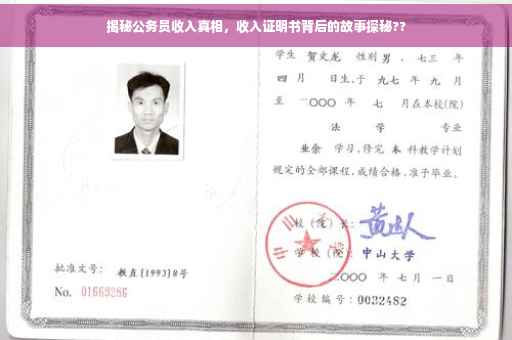 揭秘公务员收入真相，收入证明书背后的故事探秘??
学生 贺文龙 性别 男，七三 年
四 月 日生，于 九七 年 九 月
至 二〇〇〇 年 七 月在本校(院)
法 学 专业
业余 学习，修完 本 科教学计划
规定的全部课程，成绩合格，准予毕业。
校（院）长：
学校（院）： 中山大学
二〇〇〇 年 七 月 一 日
批准文号： 教直[1993]8号
No. 01669286
学校编号：0032482